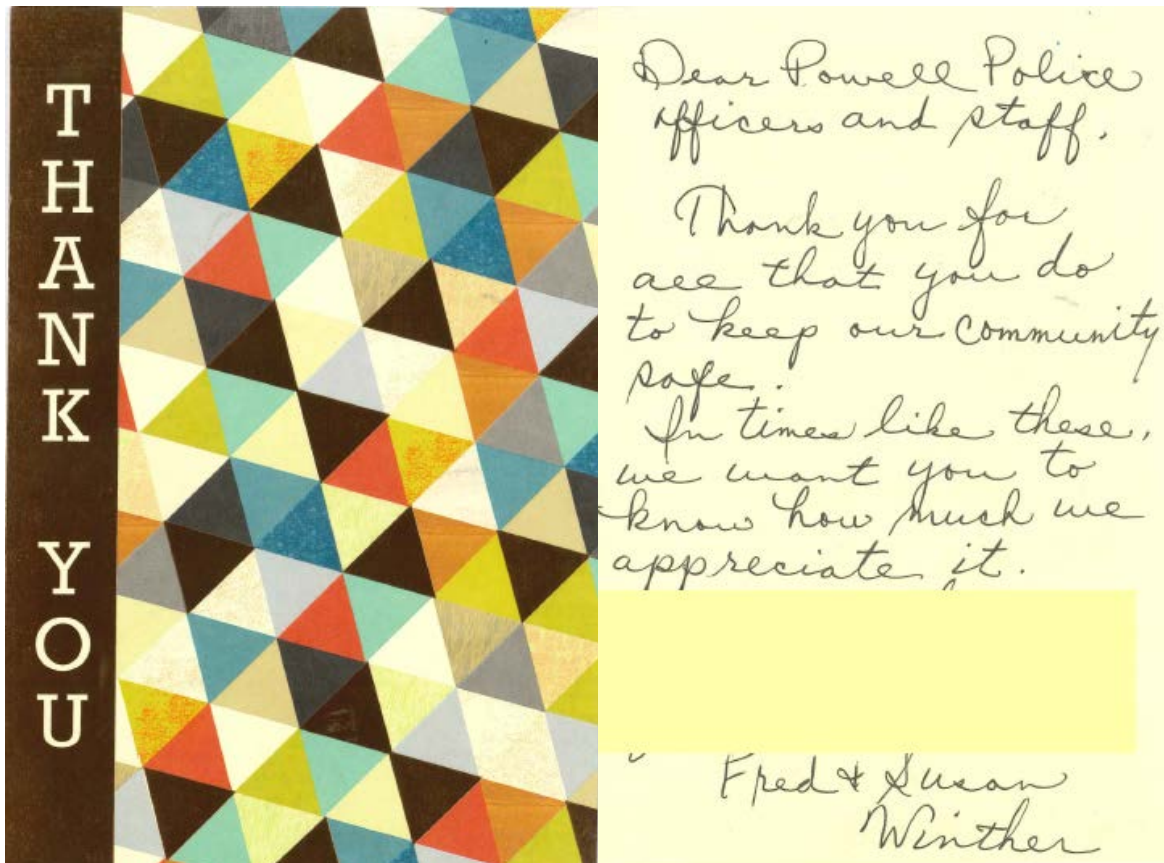 THANK YOU
Dear Powell Police
officers and staff,
Thank you for
all that you do
to keep our community
safe.
In times like these,
we want you to
know how much we
appreciate it.
Fred & Susan
Winther